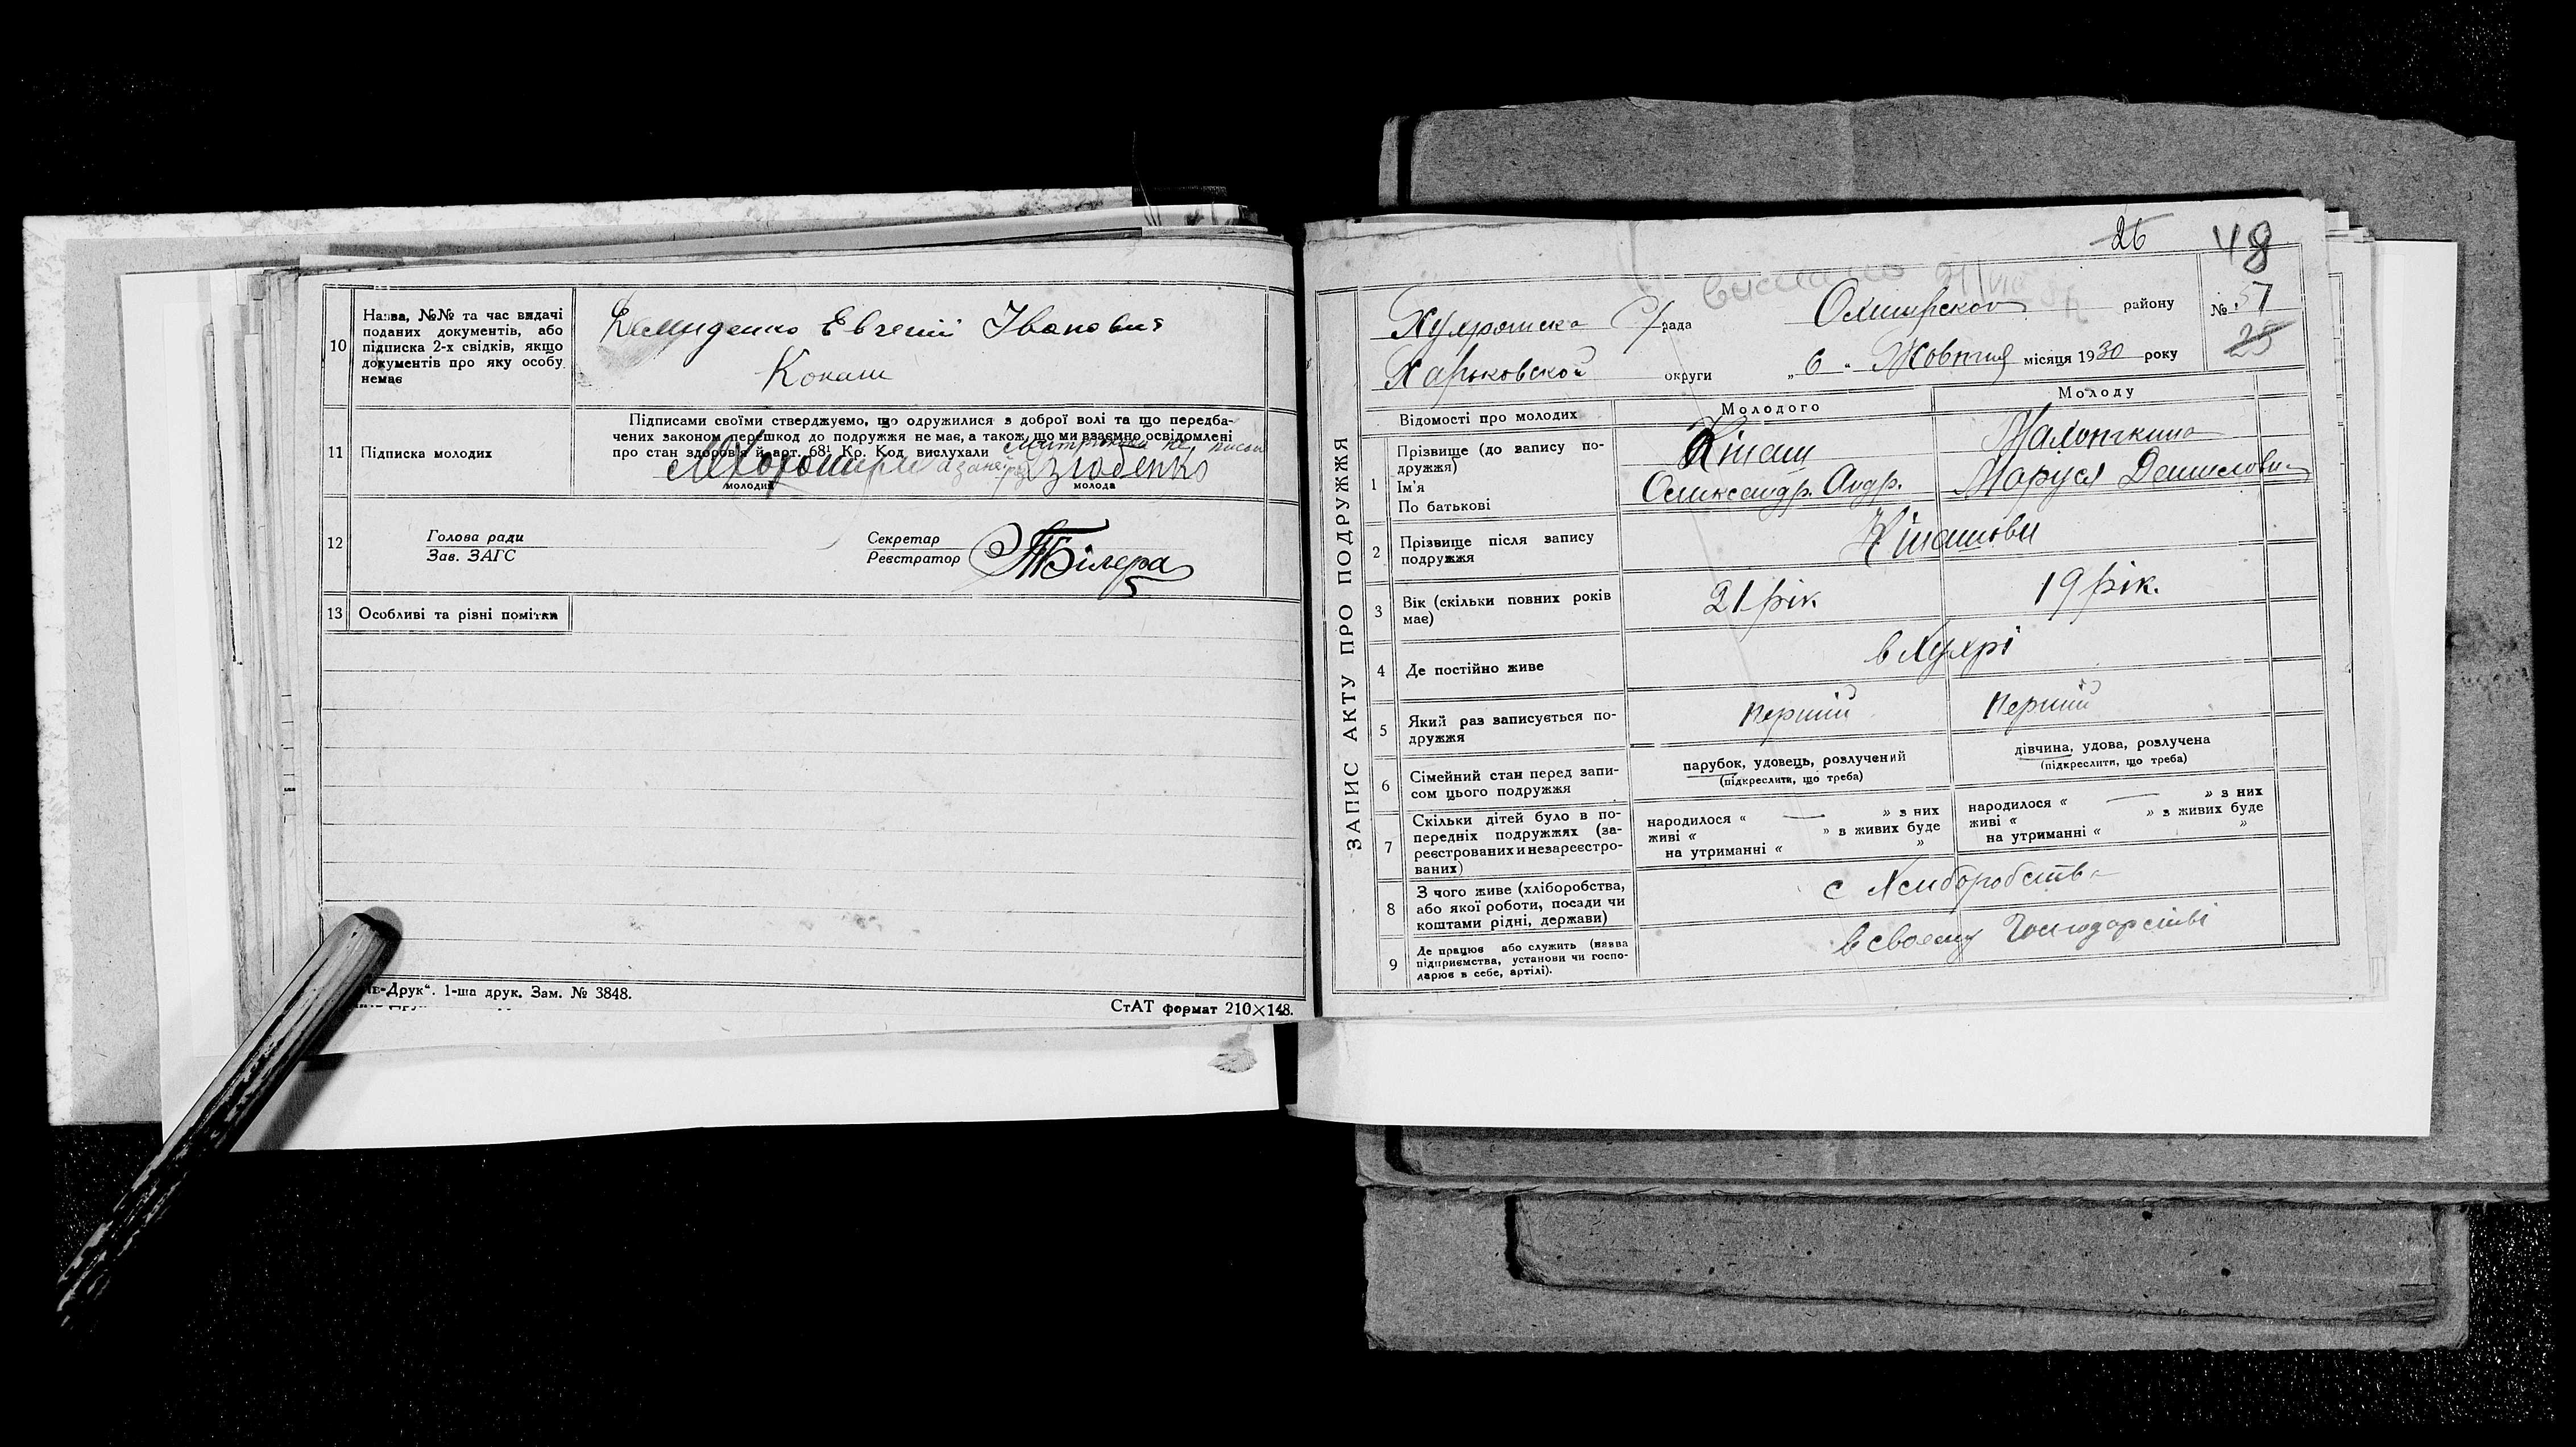 10
Назва, №№ та час видачі
поданих документів, або
підписка 2-х свідків, якщо
документів про яку особу
немає
Евгеній Іванович
Конаш
11
Підписка молодих
Підписами своїми стверджуємо, що одружилися з доброї волі та що передба-
чених законом перешкод до подружжя немає, а також, що ми взаємно освідомлені
про стан здоров'я й арт. 68¹ Кр. Код. вислухали
молодий
молода
12
Голова ради
Зав. ЗАГС
Секретар
Реєстратор
13 Особливі та різні помітки
-Друк“. 1-ша друк. Зам. № 3848.
СтАТ формат 210×148.
26 48
ЗАПИС АКТУ ПРО ПОДРУЖЖЯ
С/рада
району
№ 57
25
Харьковской округи „6“ Жовтня місяця 1930 року
Відомості про молодих
Молодого
Молоду
1
Прізвище (до запису по-
дружжя)
Ім'я
По батькові
Кіташ
Олександр. Андр.
Маруся
2
Прізвище після запису
подружжя
Кіташови
3
Вік (скільки повних років
має)
21 рік
19 рік.
4
Де постійно живе
в Хухрі
5
Який раз записується по-
дружжя
перший
перший
6
Сімейний стан перед запи-
сом цього подружжя
парубок, удовець, розлучений
(підкреслити, що треба)
дівчина, удова, розлучена
(підкреслити, що треба)
7
Скільки дітей було в по-
передніх подружжях (за-
реєстрованих и незареєстро-
ваних)
народилося « — » з них
живі « » в живих буде
на утриманні « »
народилося « — » з них
живі « » з живих буде
на утриманні « »
8
З чого живе (хліборобства,
або якої роботи, посади чи
коштами рідні, держави)
с Хлиборобства
9
Де працює або служить (назва
підприємства, установи чи госпо-
дарює в себе, артілі).
в своему Господарстві